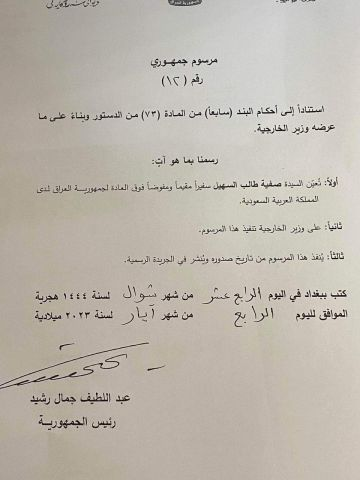 مرسوم جمهوري
رقم (١٢)
استناداً إلى أحكام البند (سابعاً) من المادة (٧٣) من الدستور وبناءً على ما
عرضه وزير الخارجية.
رسمنا بما هو آتٍ:
أولاً: تُعيّن السيدة صفية طالب السهيل سفيراً مقيماً ومفوضاً فوق العادة لجمهورية العراق لدى
المملكة العربية السعودية.
ثانياً: على وزير الخارجية تنفيذ هذا المرسوم.
ثالثاً: يُنفذ هذا المرسوم من تاريخ صدوره ويُنشر في الجريدة الرسمية.
كتب ببغداد في اليوم الرابع عشر من شهر شوال لسنة ١٤٤٤ هجرية
الموافق لليوم الرابع من شهر آيار لسنة ٢٠٢٣ ميلادية
عبد اللطيف جمال رشيد
رئيس الجمهورية